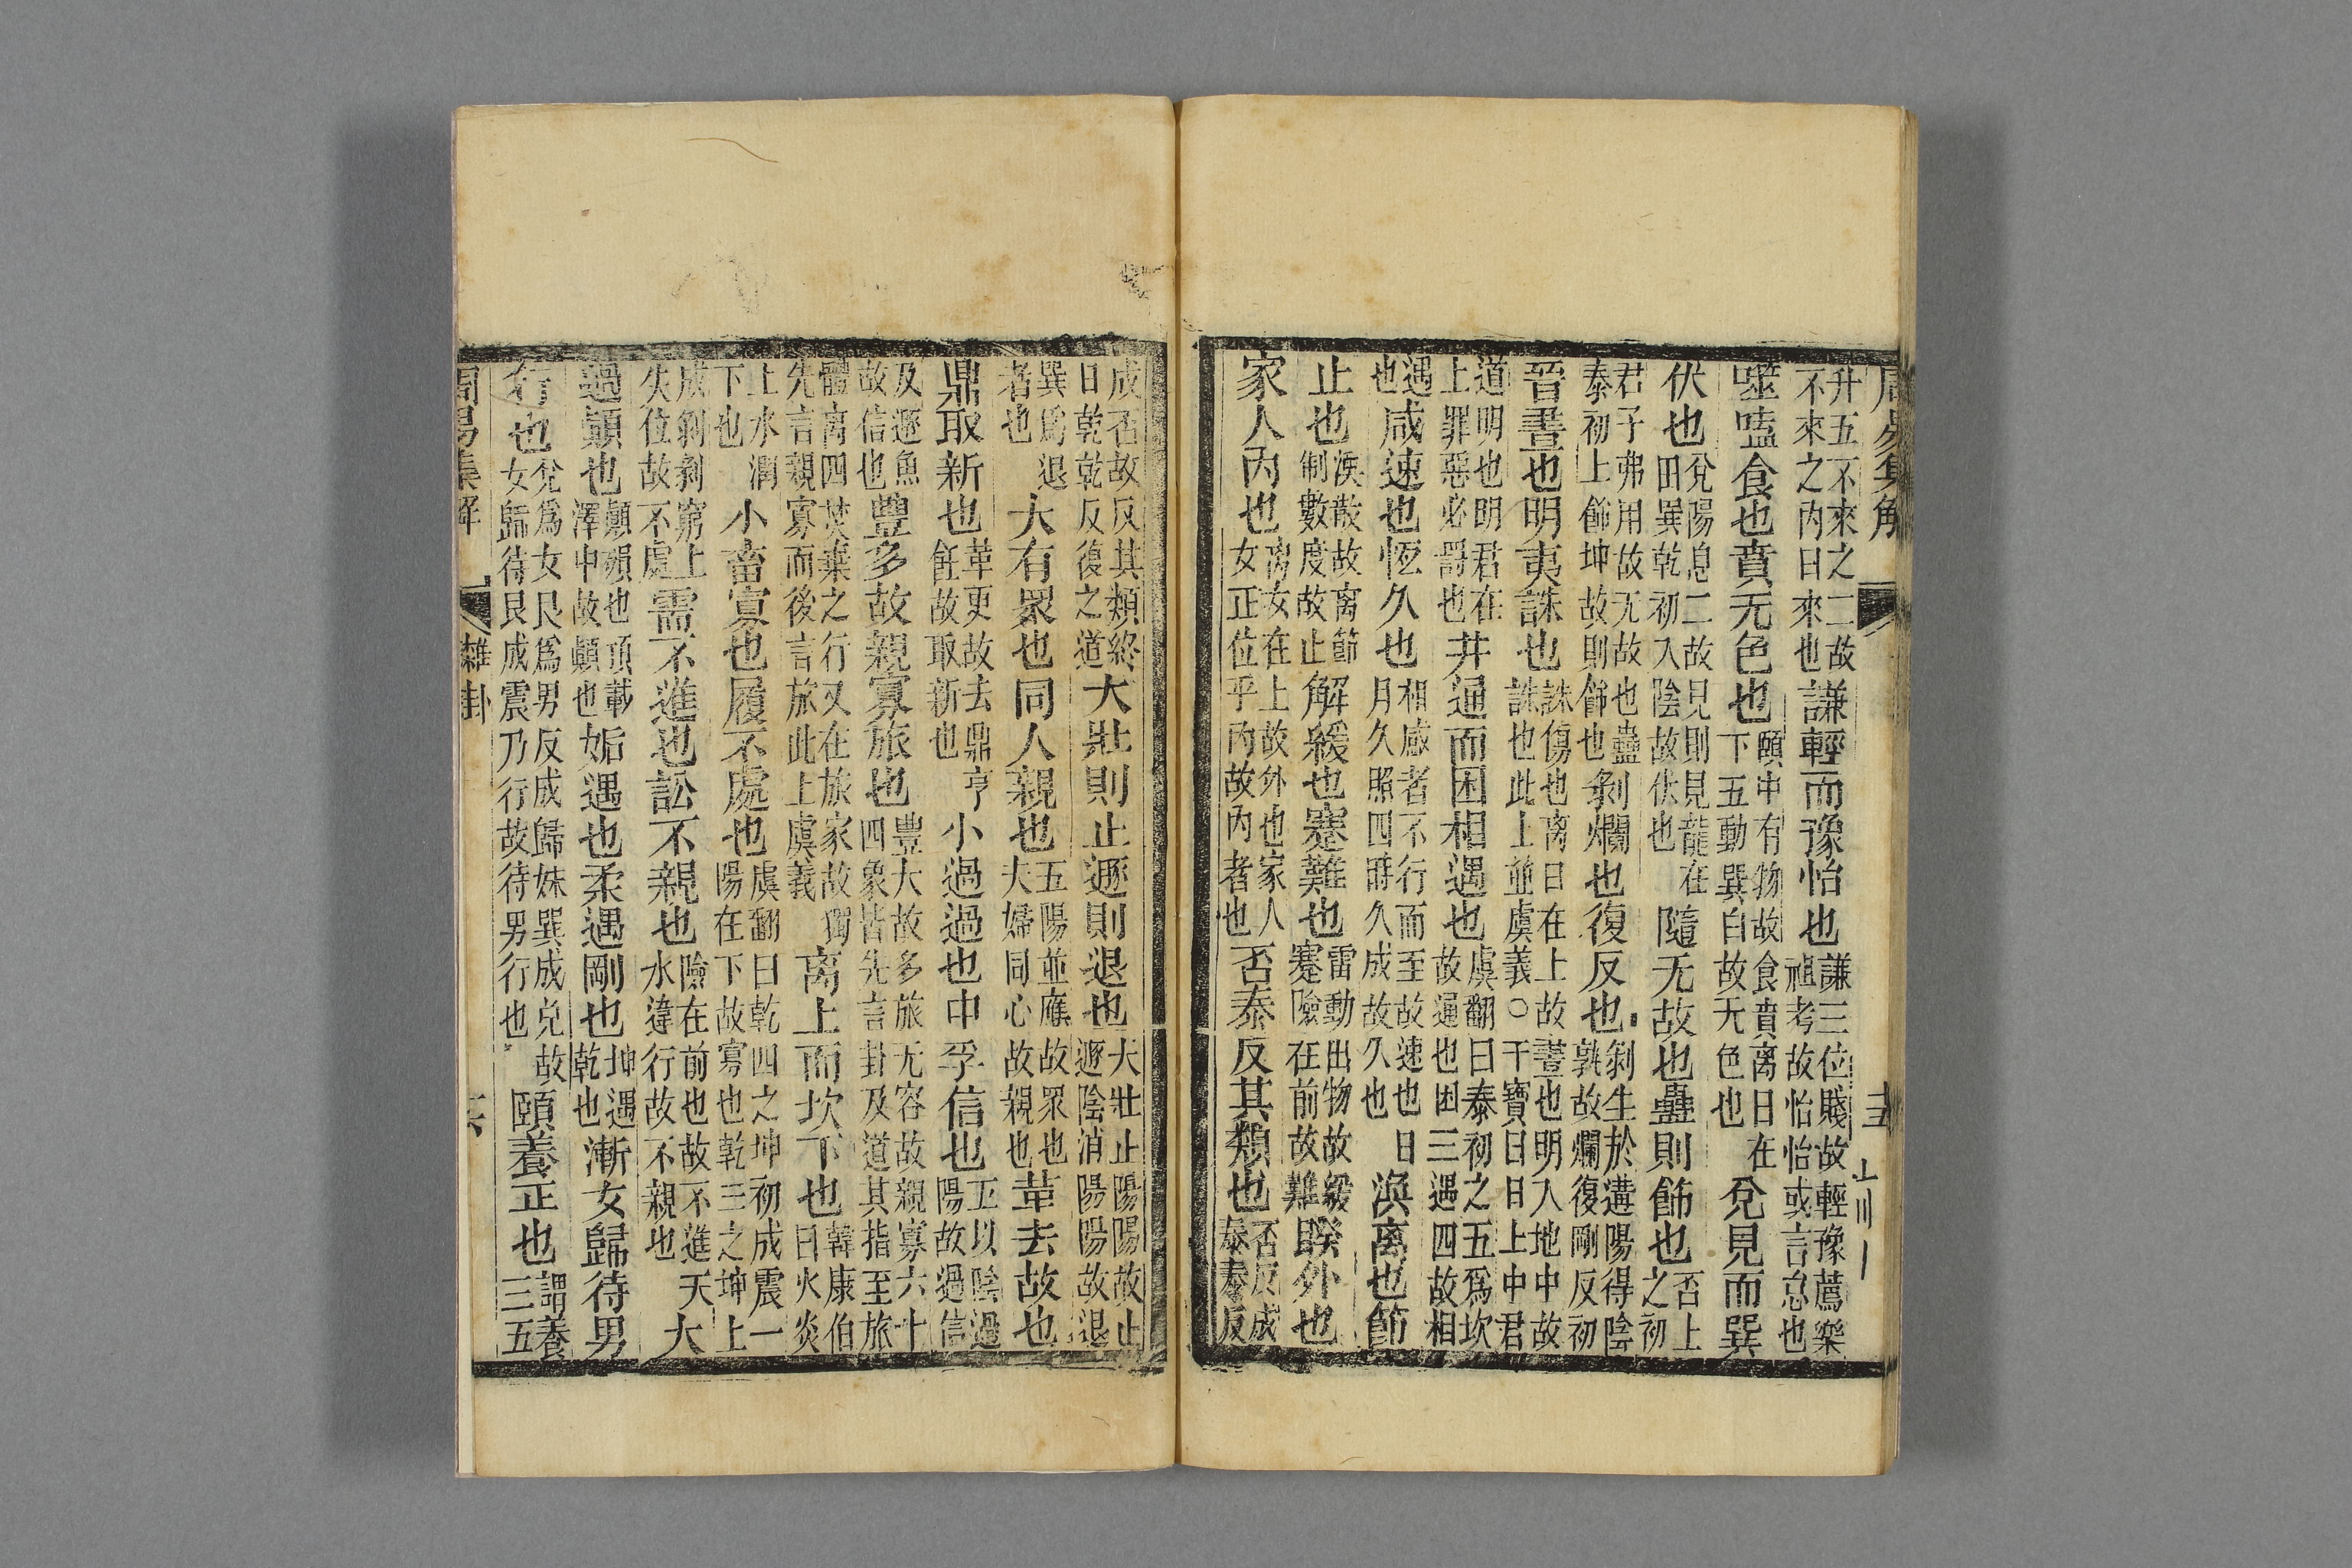 周易集解
升五不來之二故
不來之內曰來也
謙輕而豫怡也
謙三位賤故輕豫薦樂
祖考故怡怡或言怠也
噬嗑食也賁无色也
頤中有物故食賁離日在
下五動巽白故无色也
兌見而巽
伏也
兌陽息二故見則見龍在
田巽乾初入陰故伏也
隨无故也蠱則飾也
否上
之初
君子弗用故无故也蠱
泰初上飾坤故則飾也
剝爛也復反也
剝生於遘陽得陰
孰故爛復剛反初
晉晝也明夷誅也
誅傷也离日在上故晝也明入地中故
誅也此上並虞義○干寶曰日上中君
道明也明君在
上罪惡必罰也
井通而困相遇也
虞翻曰泰初之五爲坎
故通也困三遇四故相
遇
也
咸速也恆久也
相感者不行而至故速也日
月久照四時久成故久也
渙离也節
止也
渙散故离節
制數度故止
解緩也蹇難也
雷動出物故緩
蹇險在前故難
睽外也
家人內也
离女在上故外也家人
女正位乎內故內者也
否泰反其類也
否反成
泰泰反
成否故反其類終
日乾乾反復之道
大壯則止遯則退也
大壯止陽陽故止
遯陰消陽陽故退
巽爲退
者也
大有眾也同人親也
五陽並應故眾也
夫婦同心故親也
革去故也
鼎取新也
革更故去鼎亨
飪故取新也
小過過也中孚信也
五以陰過
陽故過信
及遯魚
故信也
豐多故親寡旅也
豐大故多旅无容故親寡六十
四象皆先言卦及道其指至旅
體离四焚棄之行又在旅家故獨
先言親寡而後言旅此上虞義
离上而坎下也
韓康伯
曰火炎
上水潤
下也
小畜寡也履不處也
虞翻曰乾四之坤初成震一
陽在下故寡也乾三之坤上
成剝剝窮上
失位故不處
需不進也訟不親也
險在前也故不進天
水違行故不親也
大
過顚也
顚殞也頂載
澤中故顚也
姤遇也柔遇剛也
坤遇
乾也
漸女歸待男
行也
兌爲女艮爲男反成歸妹巽成兌故
女歸待艮成震乃行故待男行也
頤養正也
謂養
三五
周易集解
雜卦